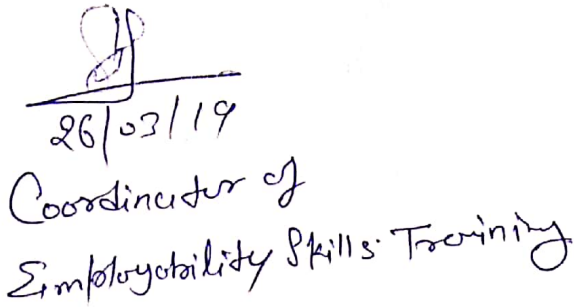 26/03/19
Coordinator of
Employability Skills Training